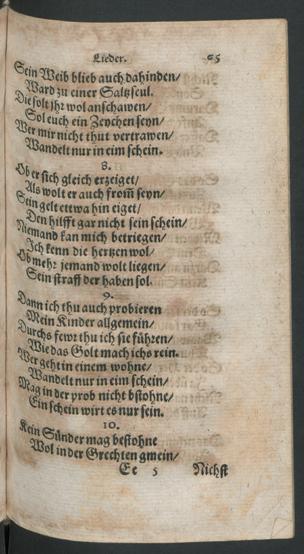 Lieder. 65
Sein Weib blieb auch dahinden/
Ward zu einer Saltzseul.
Die solt jhr wol anschawen/
Sol euch ein Zeychen seyn/
Wer mir nicht thut vertrawen/
Wandelt nur in eim schein.
8.
Ob er sich gleich erzeiget/
Als wolt er auch from̃ seyn/
Sein gelt ettwa hin eiget/
Den hilfft gar nicht sein schein/
Niemand kan mich betriegen/
Ich kenn die hertzen wol/
Ob mehr jemand wolt liegen/
Sein straff der haben sol.
9.
Dann ich thu auch probieren
Mein Kinder allgemein/
Durchs fewr thu ich sie führen/
Wie das Golt mach ichs rein.
Wer geht in einem wohne/
Wandelt nur in eim schein/
Mag in der prob nicht bstohne/
Ein schein wirt es nur sein.
10.
Kein Sünder mag bestohne
Wol in der Grechten gmein/
Ee 5 Nichst